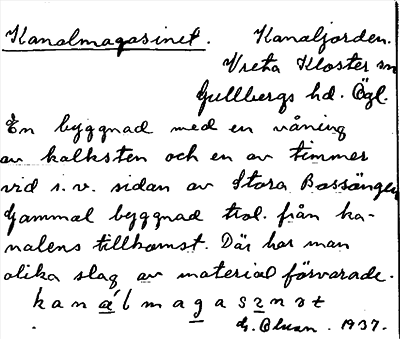 Kanalmagasinet. Kanaljorden.
Vreta Kloster sn
Gullbergs hd. Ögl.
En byggnad med en våning
av kalksten och en av timmer
vid s.v. sidan av Stora Bassängen
Gammal byggnad trol. från ka-
nalens tillkomst. Där har man
olika slag av material förvarade.
kanálmagasznət
1937.